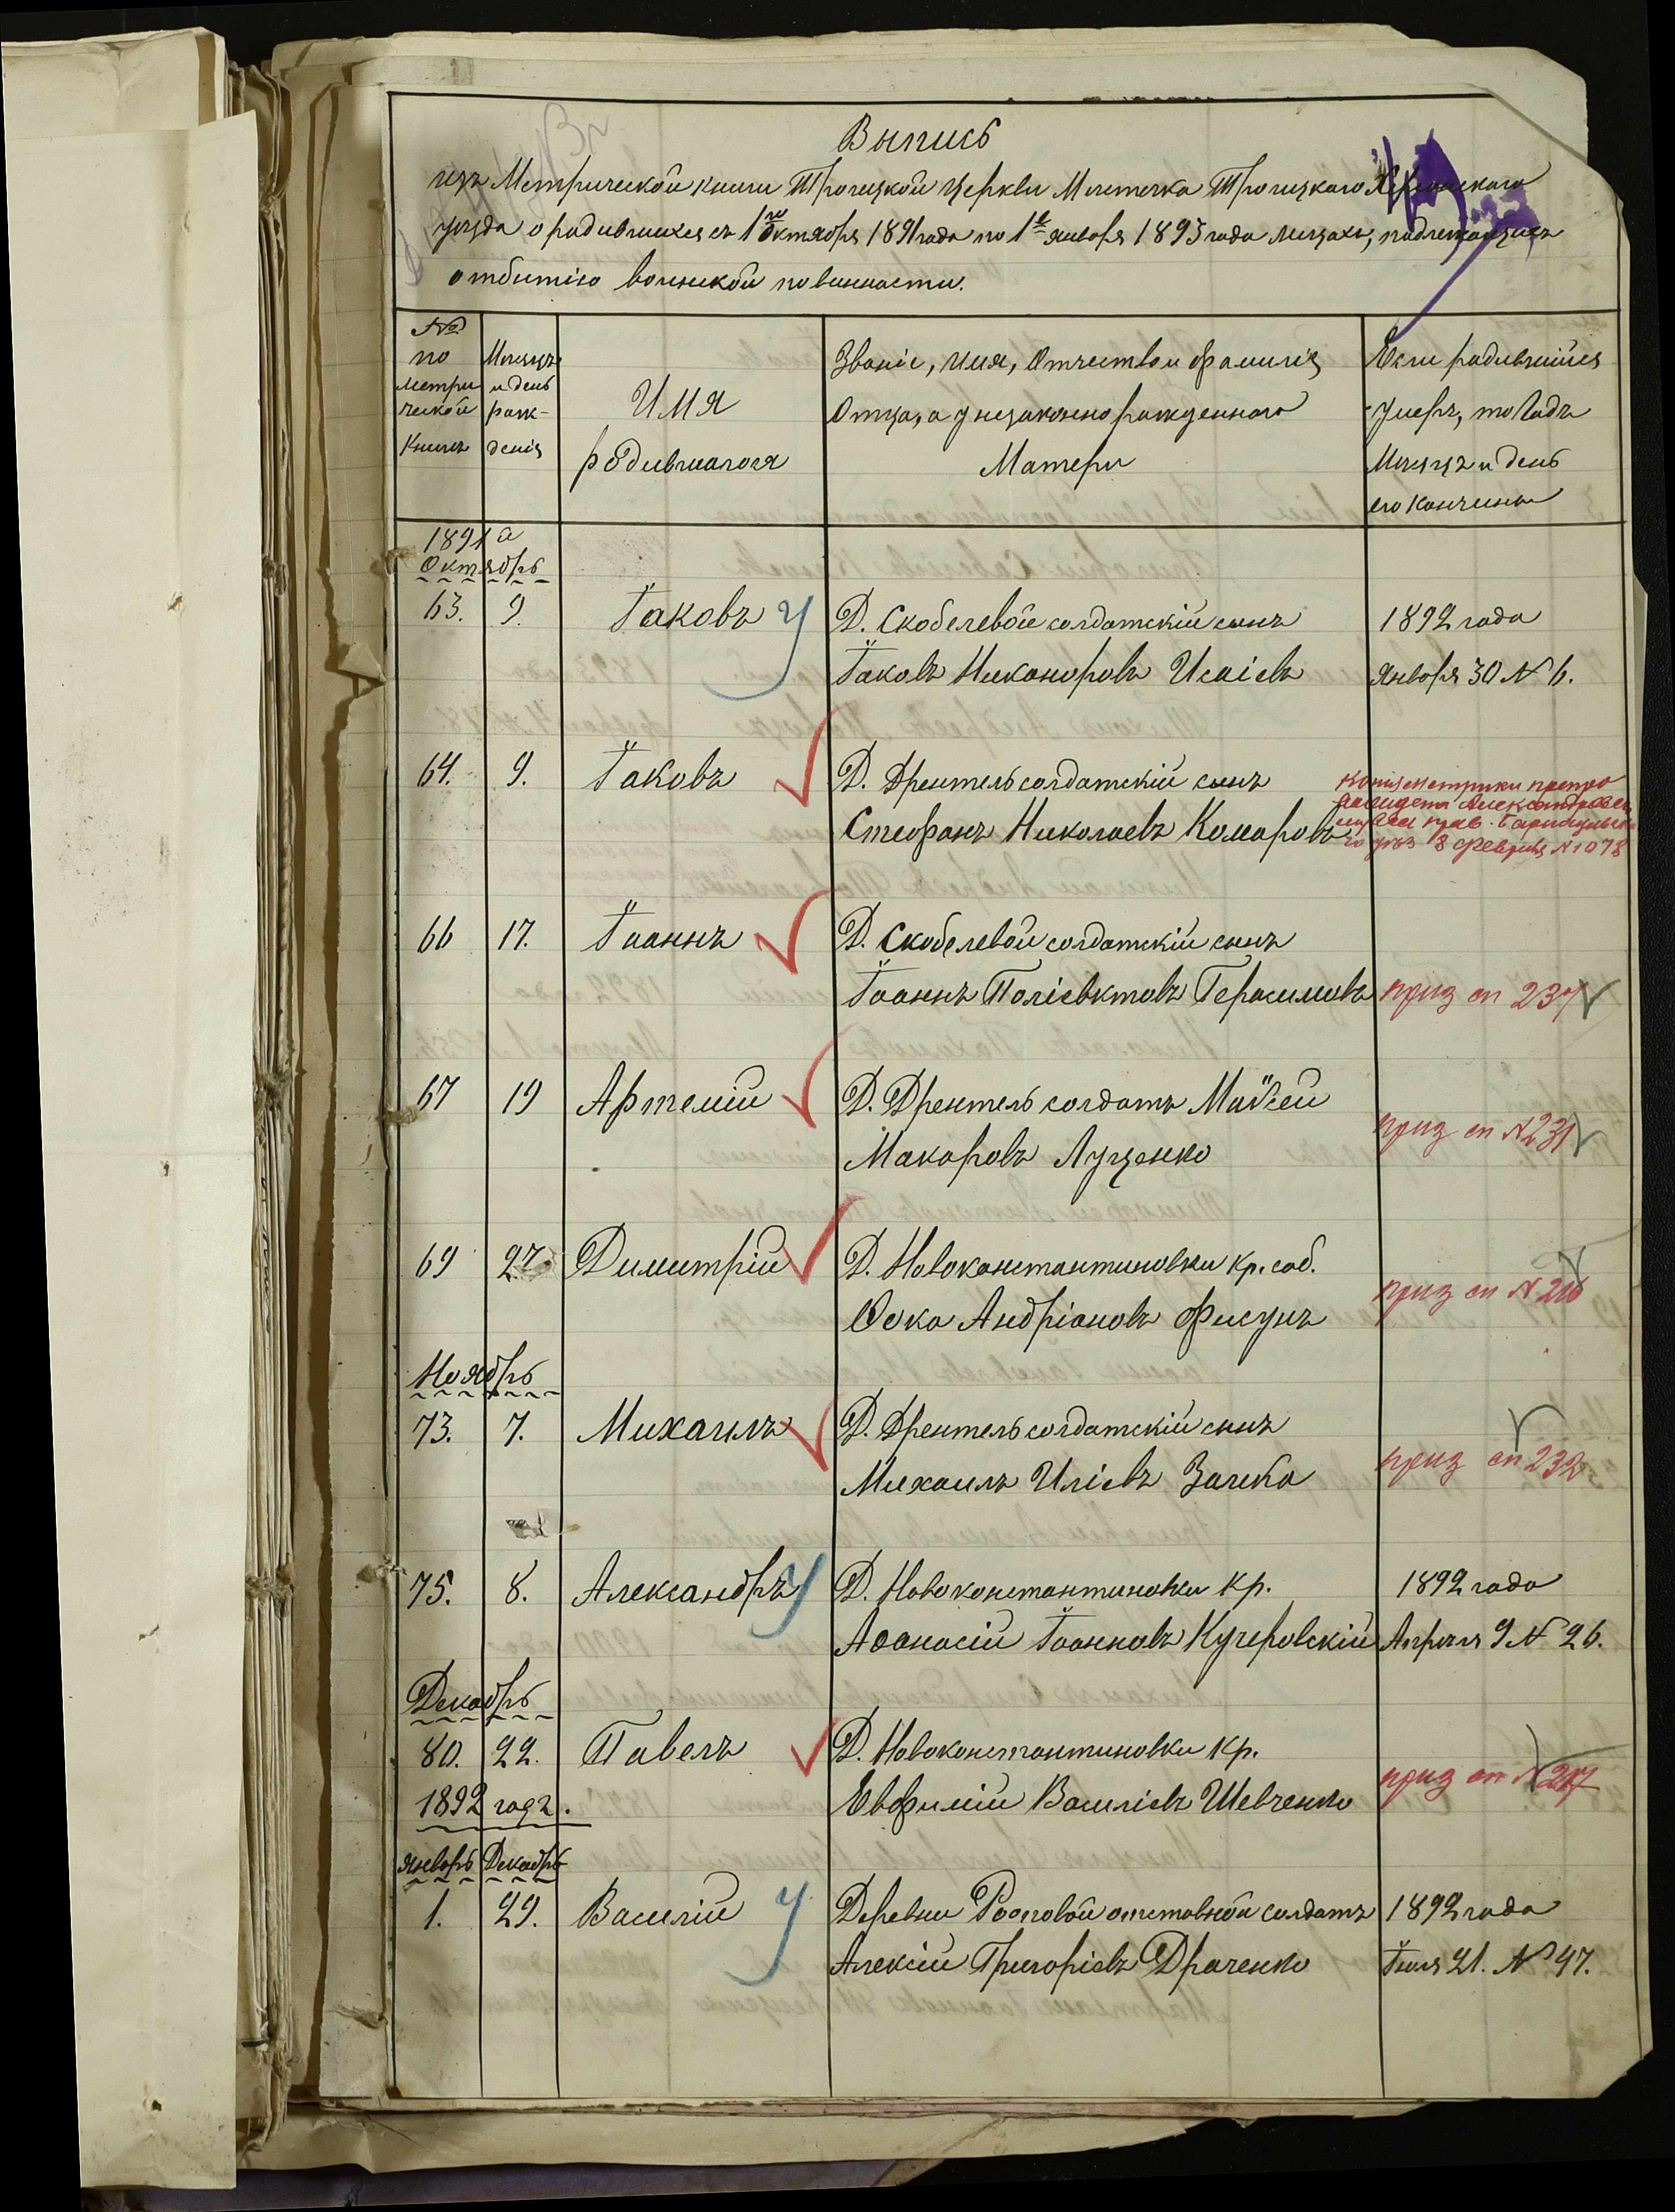 Выпись
изъ Метрической книги Троицкой Церкви Местечка Троицкаго Херсонскаго
уезда о родившихся съ 1го Октября 1891 года по 1е Января 1893 года лицахъ, подлежащихъ
отбытію воинской повинности.
№ по метрической книгъ
Месяцъ и день рожденія
Имя родившагося
Званіе, имя, отчество и фамилія Отца, а у незаконнорожденнаго Матери
Если родившійся умеръ, то годъ Месяцъ и день его кончины
1891 а
Октябрь
63. 9. Іаковъ у Д. Скобелевой солдатскій сынъ 1892 года
Іаковъ Никаноровъ Исаіевъ Января 30 № 6.
64. 9. Іаковъ Д. Дрентель солдатскій сынъ
Стефанъ Николаевъ Комаровъ
Копія метрики
8 февраля №1078
66 17. Іоаннъ Д. Скобелевой солдатскій сынъ
Іоаннъ Поліевктовъ Герасимовъ приз сп
67 19 Артемій Д. Дрентель солдатъ Моѵсей
Макаровъ Луценко приз сп №231
69 27. Димитрій Д. Новоконстантиновки кр. соб.
Ѳока Андріановъ Фисунъ приз сп №
Ноябрь
73. 7. Михаилъ Д. Дрентель солдатскій сынъ
Михаилъ Иліевъ Заека приз сп 232
75. 8. Александръ у Д. Новоконстантиновки кр. 1892 года
Аѳанасій Іоанновъ Кучеровскій Апреля 9 № 26.
Декабрь
80. 22. Павелъ Д. Новоконстантиновки кр.
Евфимій Василіевъ Шевченко приз сп №
1892 годъ.
Январь Декабрь
1. 29. Василій у Деревни отставной солдатъ 1892 года
Алексій Григоріевъ Драченко Іюля 21. № 47.